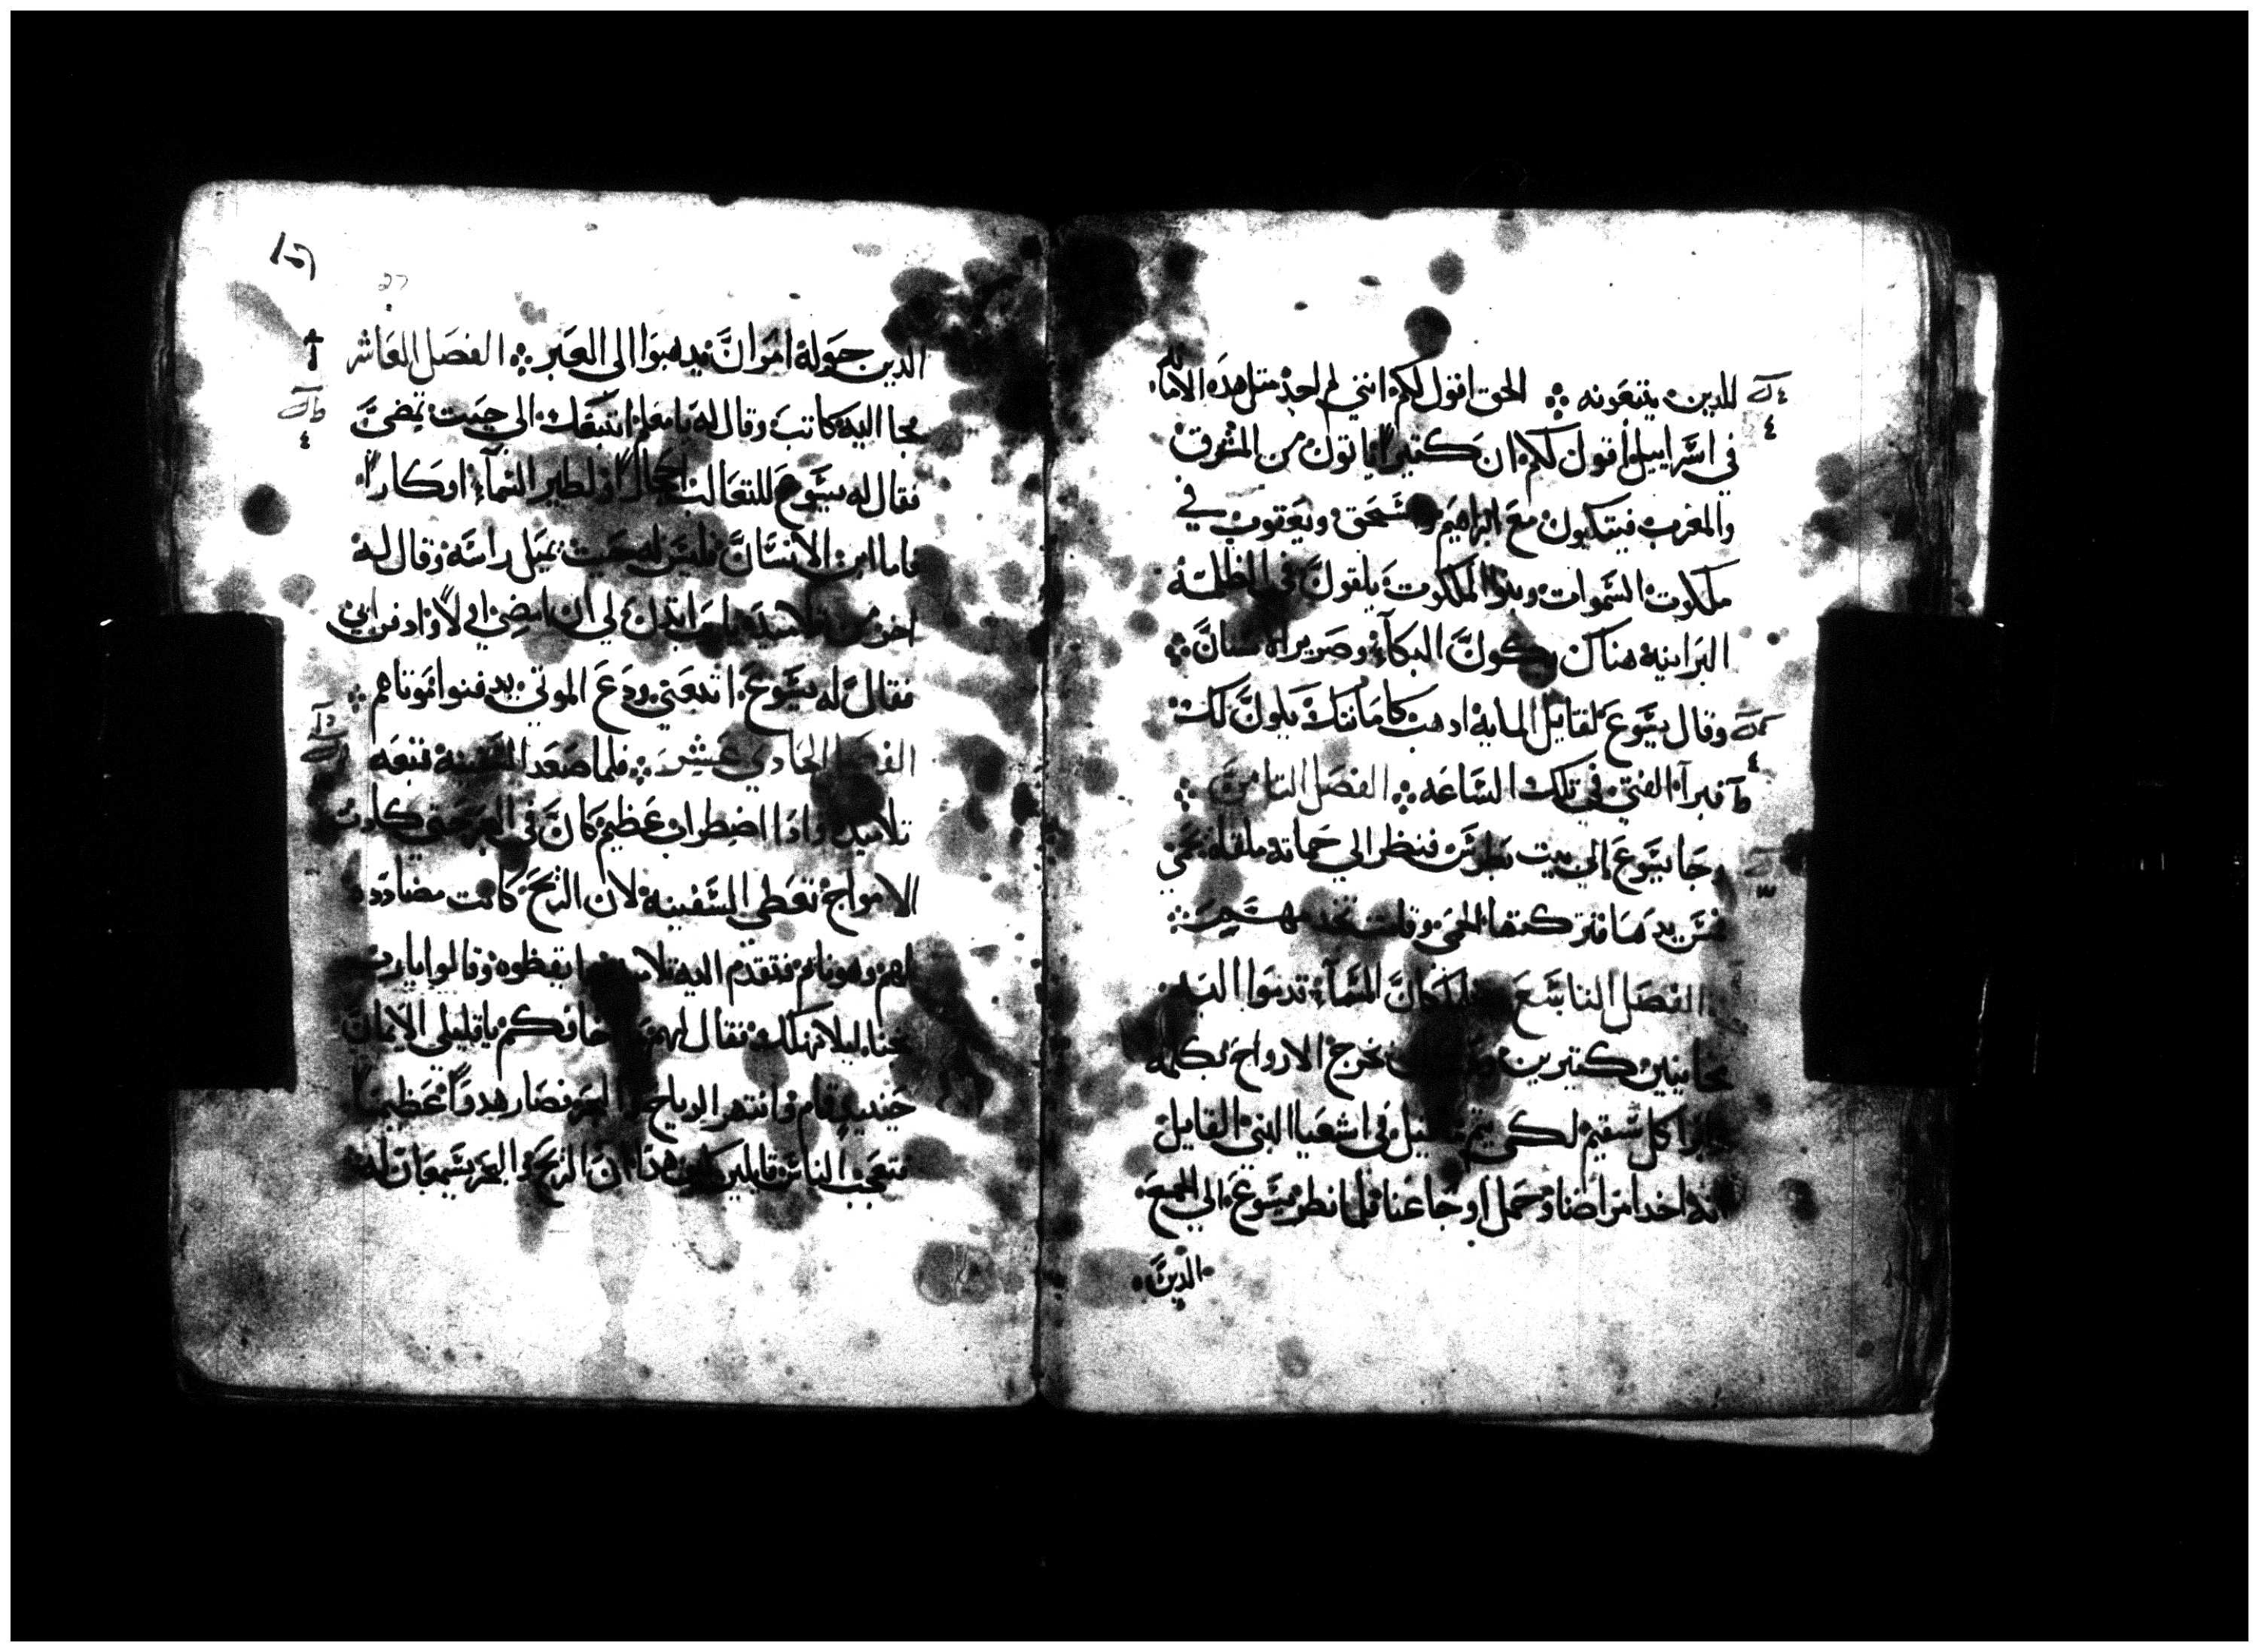 للدين يتبعونه ⁘ الحق اقول لكم انني لم اجد متل هذه الامانه
في اسراييل اقول لكم ان كتيرا ياتون من المشرق
والمغرب فيتكون مع ابراهيم واسحق ويعقوب في
ملكوت السموات وبنو الملكوت يلقون في الظلمة
البرانيه هناك يكون البكاء وصرير الاسنان ⁘
وقال يسوع لقايد المايه ادهب كامانتك يكون لك
فبرا الفتي في تلك الساعه ⁘ الفصل التامن ⁘
جا يسوع الي بيت بطرس فنظر الي حماته ملقاه تحمي
فمس يدها فتركتها الحمي وقامت تخدمهم ⁘
الفصل التاسع فلما كان المساء قدموا اليه
مجانين كتيرين يخرج الارواح بكلمه
وابرا كل سقيم لكي يتم ما قيل في اشعيا النبي القايل
انه اخد امراضنا وحمل اوجاعنا فلما نظر يسوع الي الجمع
الدين
27
الدين حوله امر ان يدهبوا الي العبر ⁘ الفصل العاشر
فجا اليه كاتب وقال له يا معلم اتبعك الي حيت تمضي
فقال له يسوع للتعالب احجارا ولطير السماء اوكارا
فاما ابن الانسان فليس له حيت يميل راسه وقال له
اخر من تلاميده يا رب ايدن لي ان امضي اولا وادفن ابي
فقال له يسوع اتبعني ودع الموتي يدفنوا موتاهم ⁘
الفصل الحادي عشر ⁘ فلما صعد السفينه تبعه
تلاميده وادا اضطراب عظيم كان في البحر حتي كادت
الامواج تغطي السفينه لان الريح كانت مضادده
لهم وهو نايم فتقدم اليه تلاميده ايقظوه وقالوا يا رب
نجنا ليلا نهلك فقال لهم ما خافكم يا قليلي الايمان
حينيد قام وانتهر الرياح والبحر فصار هدوا عظيما
فتعجب الناس قايلين كيف هدا ان الريح والبحر يسمعان له